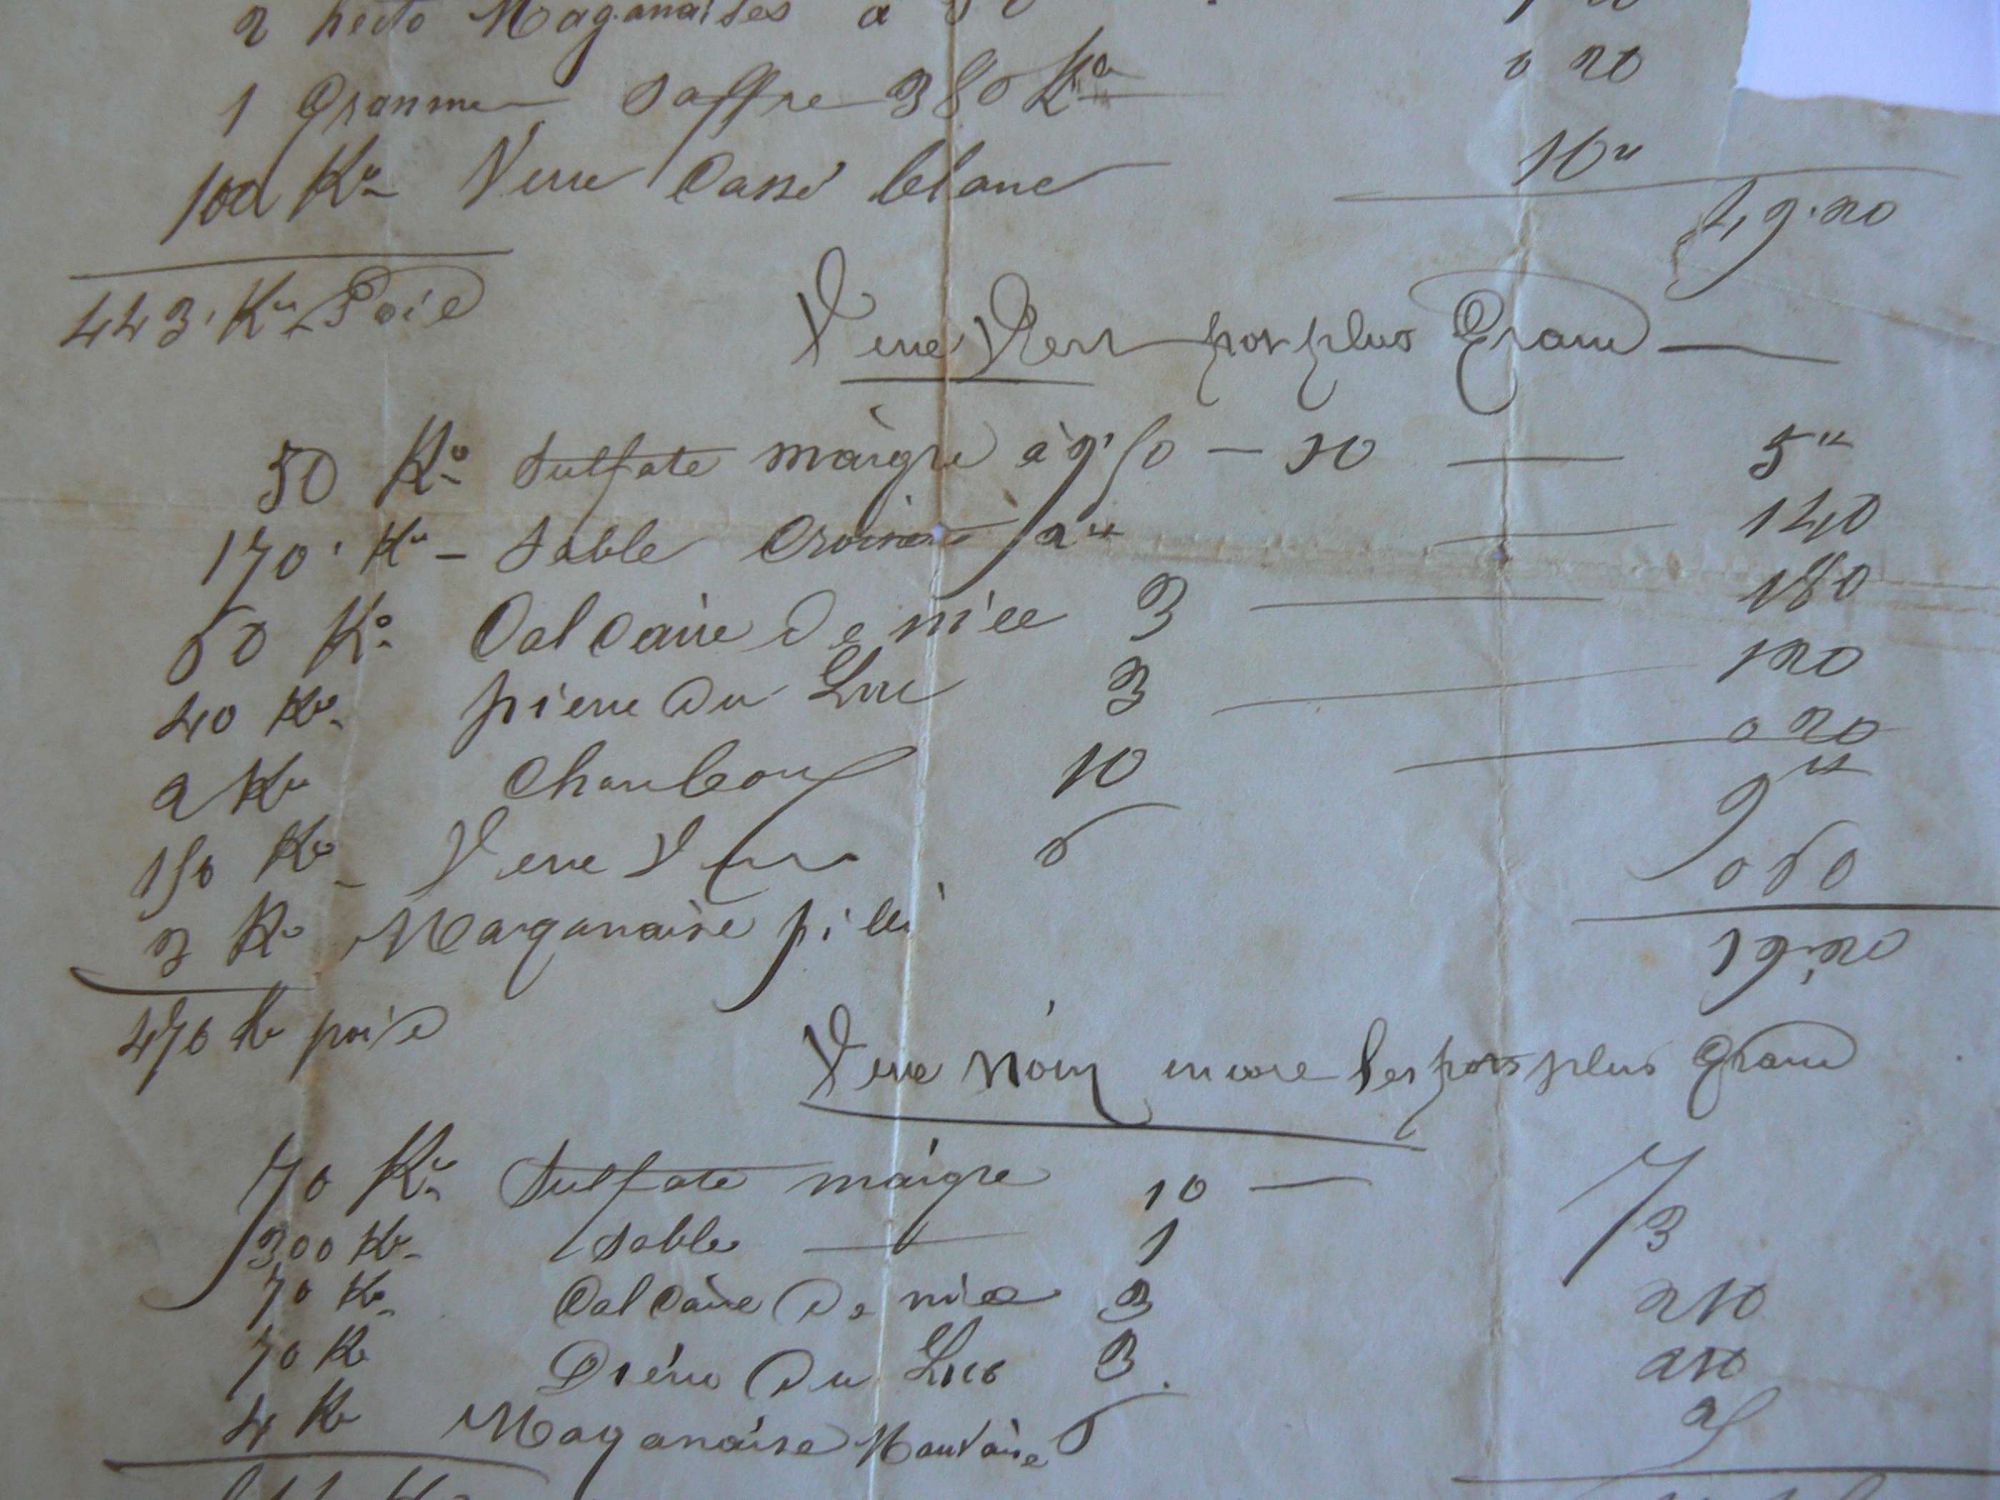 2 hecto Maganaises a 50
1 Gramme Saffre 380 Ko 0 20
100 Ko Verre Cassé blanc 10"
49.20
443. Ko Poie
Verre Vert por plus Grand
50 Ko Sulfate maigre à 9.50 — 10 — 5"
170. Ko — Sable a" — 140
60 Ko Calcaire De nice 3 — 180
40 Ko pierre du Luc 3 — 120
2 Ko Charbon 10 — 0 20
150 Ko Verre Vert 6 9"
3 Ko Marganaise pillé 060
19.20
476 Ko poise
Verre Noir encore les pors plus Grand
70 Ko Sulfate maigre 10 — 7
300 Ko Sable — 1 3
70 Ko Calcaire De nice 3 210
70 Ko Piérre Du Luc 3. 210
4 Ko Maganaise Mauvaise 6 25